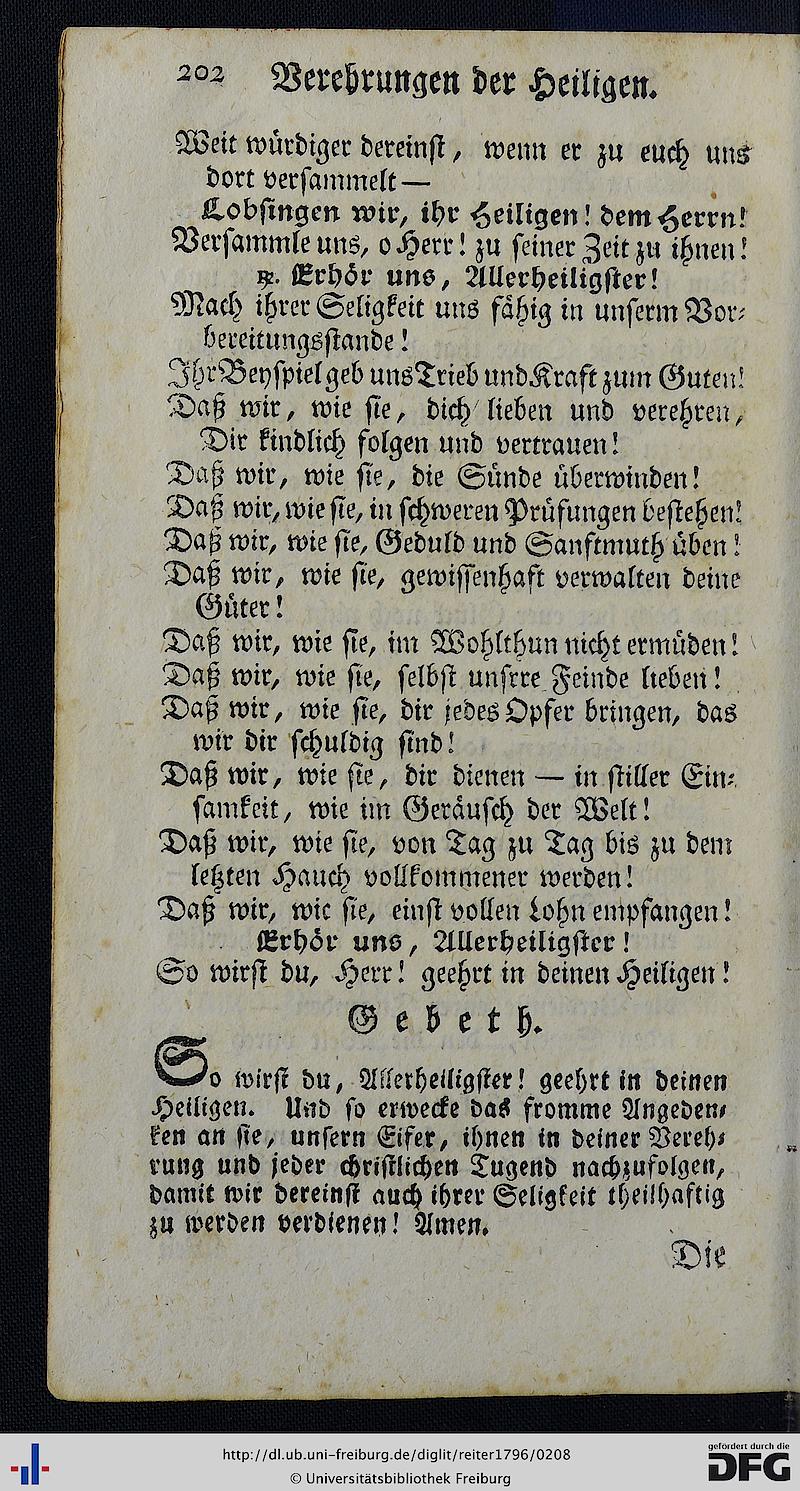 202 Verehrungen der Heiligen.
Weit würdiger dereinst, wenn er zu euch uns
dort versammelt —
Lobsingen wir, ihr Heiligen! dem Herrn!
Versammle uns, o Herr! zu seiner Zeit zu ihnen!
℟. Erhör uns, Allerheiligster!
Mach ihrer Seligkeit uns fähig in unserm Vor-
bereitungsstande!
Ihr Beyspiel geb uns Trieb und Kraft zum Guten!
Daß wir, wie sie, dich lieben und verehren,
Dir kindlich folgen und vertrauen!
Daß wir, wie sie, die Sünde überwinden!
Daß wir, wie sie, in schweren Prüfungen bestehen!
Daß wir, wie sie, Geduld und Sanftmuth üben!
Daß wir, wie sie, gewissenhaft verwalten deine
Güter!
Daß wir, wie sie, im Wohlthun nicht ermüden!
Daß wir, wie sie, selbst unsrre Feinde lieben!
Daß wir, wie sie, dir jedes Opfer bringen, das
wir dir schuldig sind!
Daß wir, wie sie, dir dienen — in stiller Ein-
samkeit, wie im Geräusch der Welt!
Daß wir, wie sie, von Tag zu Tag bis zu dem
letzten Hauch vollkommener werden!
Daß wir, wie sie, einst vollen Lohn empfangen!
Erhör uns, Allerheiligster!
So wirst du, Herr! geehrt in deinen Heiligen!
Gebeth.
So wirst du, Allerheiligster! geehrt in deinen
Heiligen. Und so erwecke das fromme Angeden-
ken an sie, unsern Eifer, ihnen in deiner Vereh-
rung und jeder christlichen Tugend nachzufolgen,
damit wir dereinst auch ihrer Seligkeit theilhaftig
zu werden verdienen! Amen.
Die
http://dl.ub.uni-freiburg.de/diglit/reiter1796/0208
© Universitätsbibliothek Freiburg
gefördert durch die
DFG